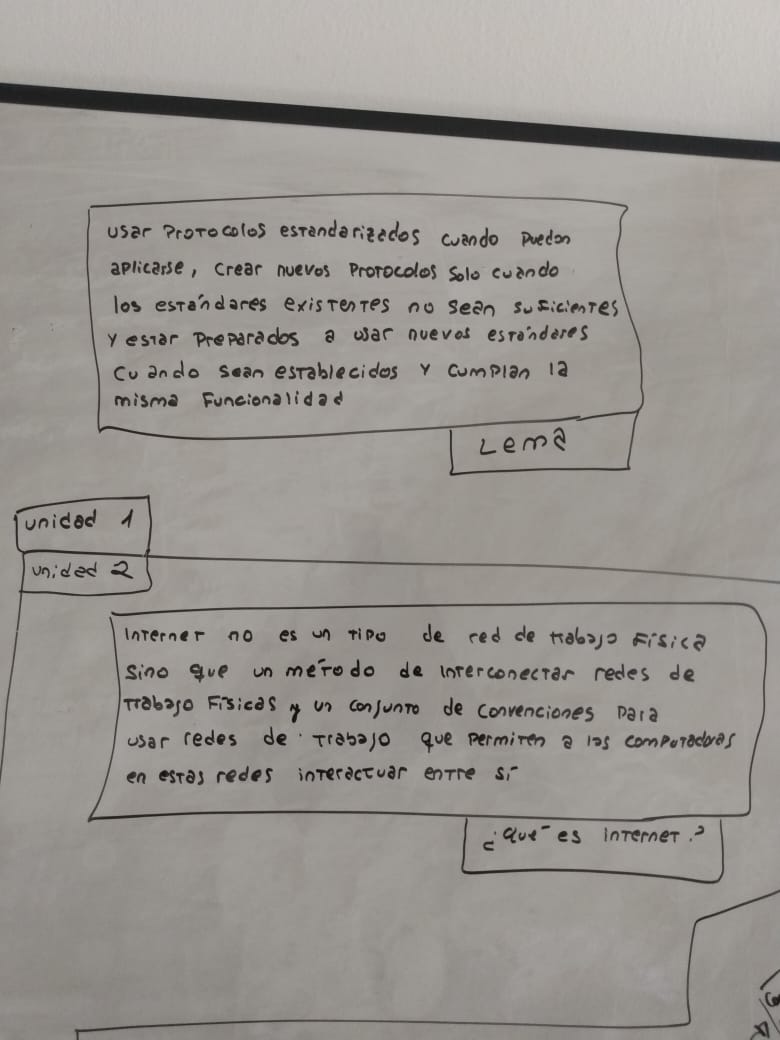 usar Protocolos estandarizados cuando puedan
aplicarse, crear nuevos Protocolos solo cuando
los estándares existentes no sean suficientes
y estar Preparados a usar nuevos estándares
cuando sean establecidos y cumplan la
misma Funcionalidad
Lema
unidad 1
unidad 2
Internet no es un tipo de red de trabajo Física
sino que un método de interconectar redes de
trabajo Físicas y un conjunto de convenciones para
usar redes de trabajo que permiten a las computadoras
en estas redes interactuar entre sí
¿Qué es internet?